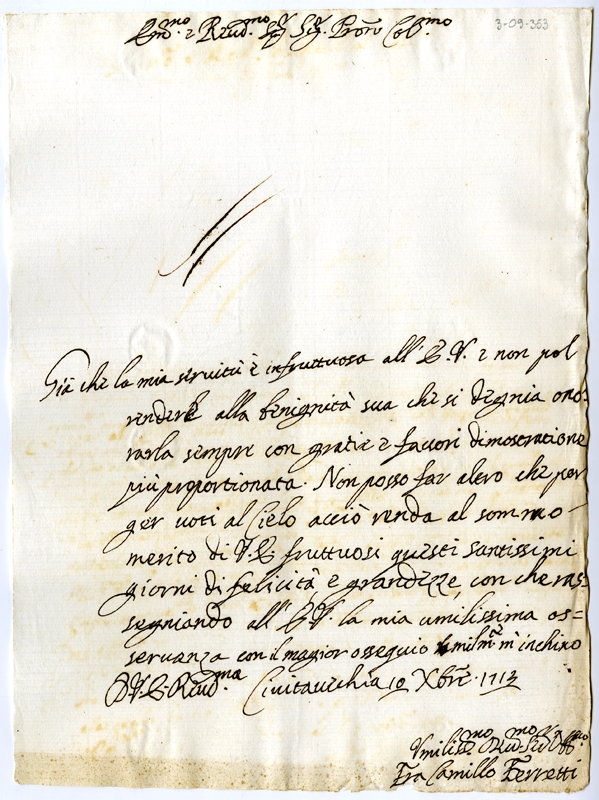 Em.mo e Reud.mo Sig.r Sig. Pron Col.mo
3-09-353
Già che la mia seruitù è infruttuosa all' E.V. e non pol
rendere alla benignità sua che si degnia ono-
rarla sempre con gratie e fauori dimostratione
più proportionata. Non posso far altro che por
ger uoti al Cielo acciò renda al sommo
merito di V.E. fruttuosi questi santissimi
giorni di felicità, e grandezze, con che ras=
segniando all' E.V. la mia umilissima os=
seruanza con il magior osseguio m'inchino
D.V.E. Reud.ma Ciuitauechia 10 Xbre 1713
Vmiliss.mo
Fra Camillo Ferretti